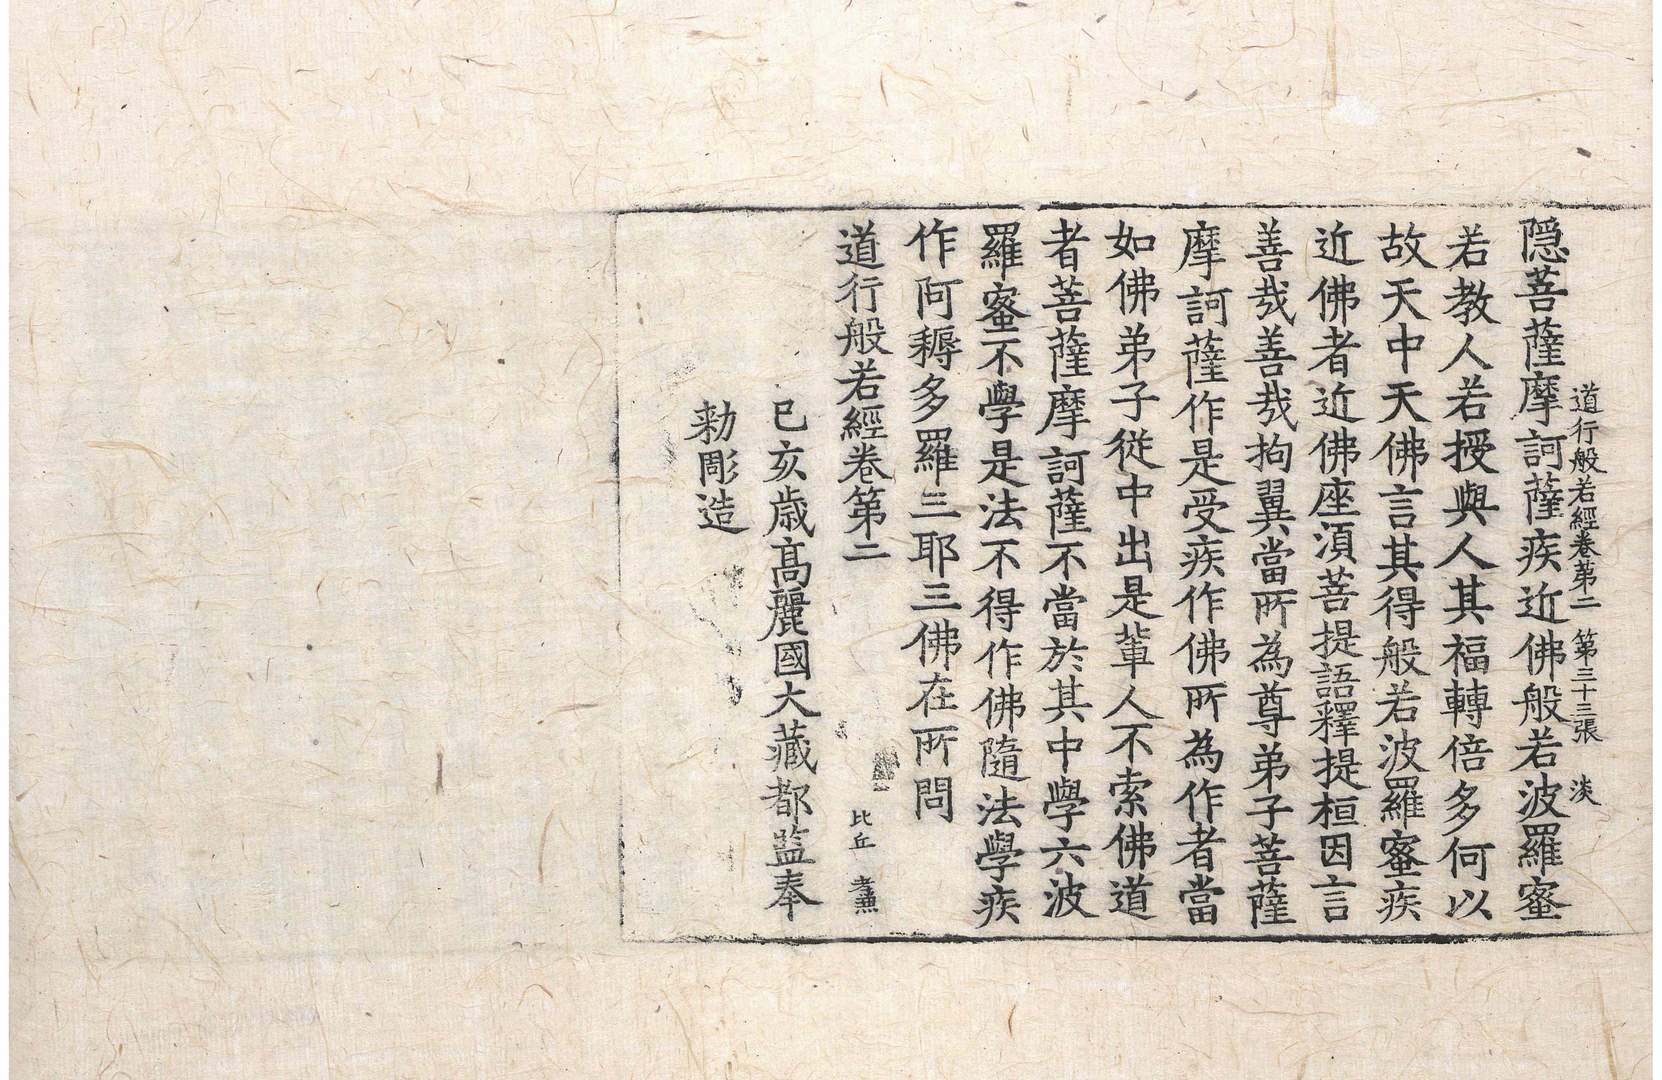 道行般若經卷第二 第三十三張 淡
隠菩薩摩訶薩疾近佛般若波羅蜜
若教人若授與人其福轉倍多何以
故天中天佛言其得般若波羅蜜疾
近佛者近佛座湏菩提語釋提桓因言
善哉善哉拘翼當所為尊弟子菩薩
摩訶薩作是受疾作佛所為作者當
如佛弟子從中出是輩人不索佛道
者菩薩摩訶薩不當於其中學六波
羅蜜不學是法不得作佛隨法學疾
作阿耨多羅三耶三佛在所問
道行般若經卷第二
比丘 孝兼
己亥歲髙麗國大藏都監奉
勑彫造